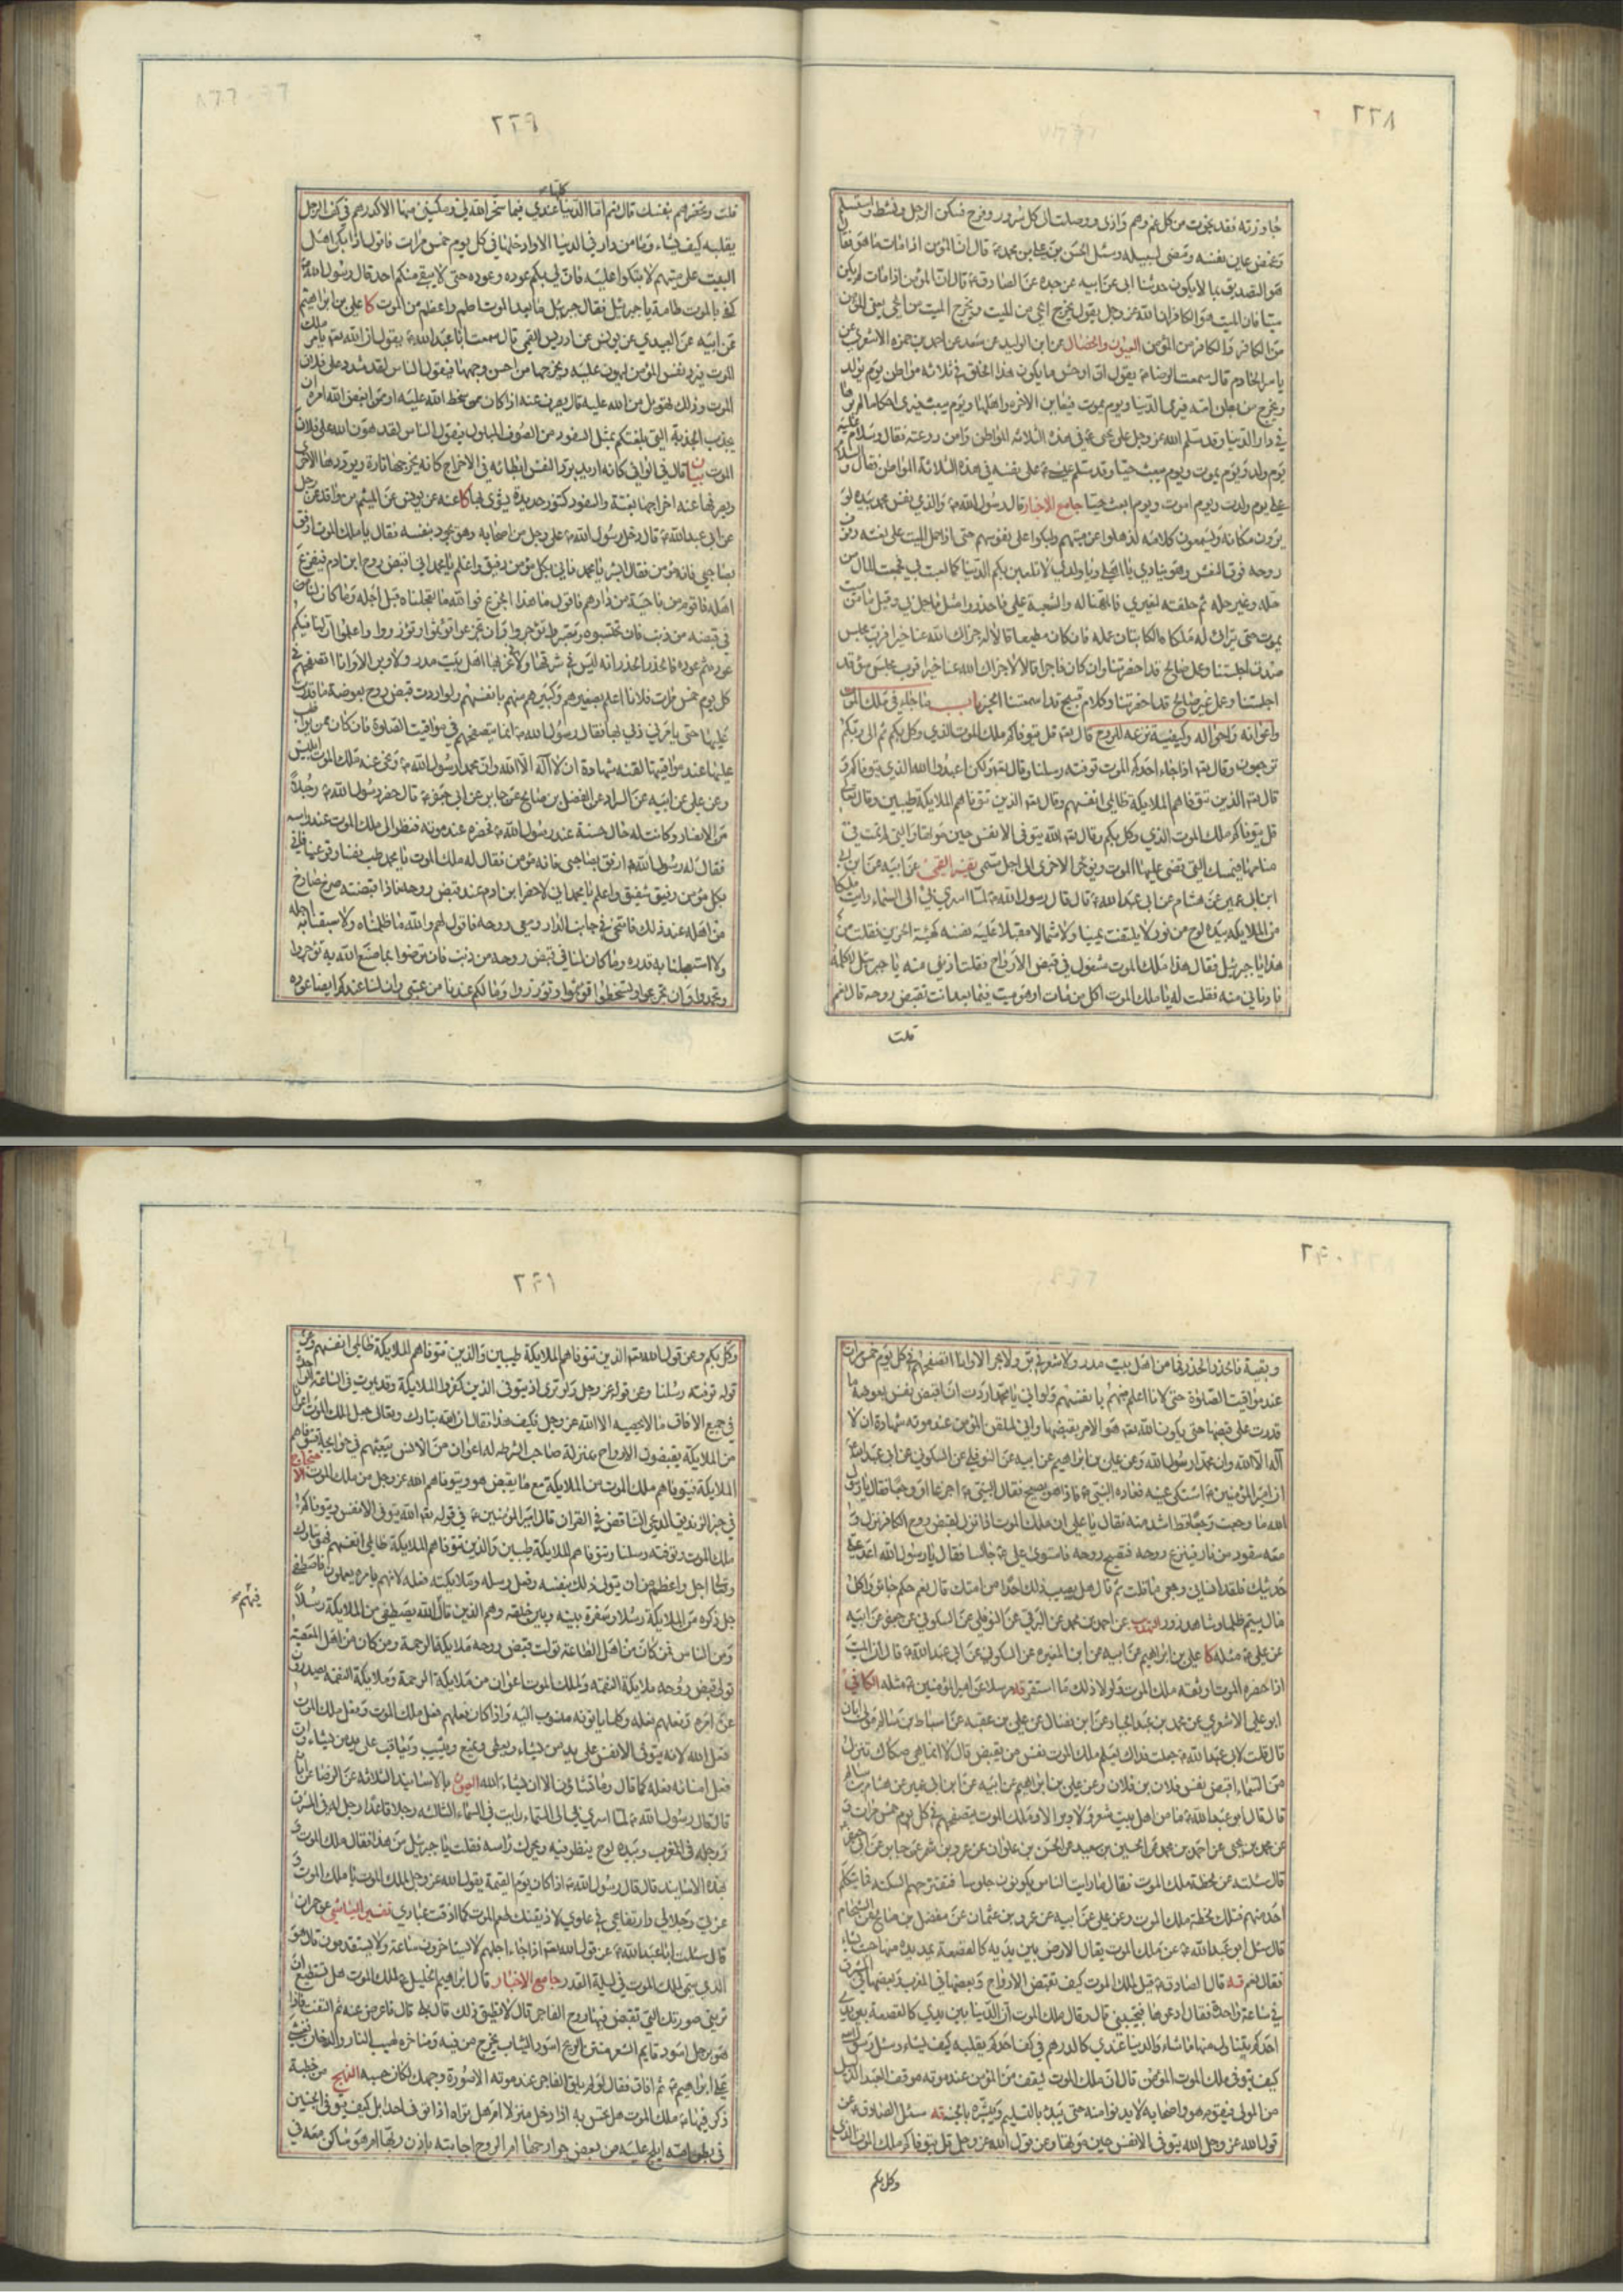 ٢٣٨
جاوزته فقد نجوت من كل غم وهم واذى ووصلت الى كل سرور وفرح فسكن الرجل ونشط واستسلم
وغمض عين نفسه ومضى لسبيله وسئل الحسن بن علي بن محمد عن قال ان المؤمن اذا مات
هو التصديق بما لا يكون حدثنا ابي عن ابيه عن جده عن الصادق قال ان المؤمن اذا مات لم يكن
ميتا فان الميت هو الكافر ان الله عز وجل يقول يخرج الحي من الميت ويخرج الميت من الحي يعني المؤمن
من الكافر والكافر من المؤمن العيون والخصال عن ابن الوليد عن سعد عن احمد بن حمزه الاشعري عن
ياسر الخادم قال سمعت الرضا يقول ان اوحش ما يكون هذا الخلق في ثلاثه مواطن يوم يولد
ويخرج من بطن امه فيرى الدنيا ويوم يموت فيعاين الاخره واهلها ويوم يبعث فيرى احكاما لم يرها
في دار الدنيا وقد سلم الله عز وجل على يحيى في هذه الثلاثه المواطن وامن روعته فقال وسلام عليه
يوم ولد ويوم يموت ويوم يبعث حيا وقد سلم عيسى على نفسه في هذه الثلاثة المواطن فقال والسلام
علي يوم ولدت ويوم اموت ويوم ابعث حيا جامع الاخبار قال رسول الله والذي نفس محمد بيده لو
يرون مكانه ويسمعون كلامه لذهلوا عن ميتهم ولبكوا على نفوسهم حتى اذا حمل الميت على نعشه رفرف
روحه فوق النعش وهو ينادي يا اهلي ويا ولدي لا تلعبن بكم الدنيا كما لعبت بي فجمعت المال من
حله وغير حله ثم خلفته لغيري فالمهنا له والتبعة علي فاحذروا مثل ما حل بي وقيل ما من ميت
يموت حتى يتراى له ملكاه الكاتبان عمله فان كان مطيعا قالا له جزاك الله عنا خيرا فرب مجلس
صدق اجلستنا وعمل صالح قد احضرتنا وان كان فاجرا قالا لا جزاك الله عنا خيرا فرب مجلس سوء قد
اجلستنا وعمل غير صالح قد احضرتنا وكلام قبيح قد اسمعتنا الخبر باب ما جاء في ملك الموت
واعوانه واحواله وكيفية نزعه للروح قال قل يتوفاكم ملك الموت الذي وكل بكم ثم الى ربكم
ترجعون وقال اذا جاء احدكم الموت توفته رسلنا وقال ولكن اعبد الله الذي يتوفاكم و
قال الذين تتوفاهم الملايكة ظالمي انفسهم وقال الذين تتوفاهم الملايكة طيبين وقال
قل يتوفاكم ملك الموت الذي وكل بكم وقال الله يتوفى الانفس حين موتها والتي لم تمت في
منامها فيمسك التي قضى عليها الموت ويؤخر الاخرى الى اجل مسمى تفسير القمي عن ابيه عن ابن
ابي عمير عن هشام عن ابي عبد الله قال قال رسول الله لما اسري بي الى السماء رايت ملكا
من الملايكه بيده لوح من نور لا يلتفت يمينا ولا شمالا مقبلا عليه نفسه كهيئة الحزين فقلت من
هذا يا جبرئيل فقال هذا ملك الموت مشغول في قبض الارواح فقلت ادنني منه يا جبرئيل لاكلمه
فادناني منه فقلت له يا ملك الموت اكل من مات او هو ميت فيما بعد انت تقبض روحه قال نعم
قلت
٢٣٩
كلها
قلت وتحضرهم بنفسك قال نعم ما الدنيا عندي فيما سخر الله لي ومكنني منها الا كدرهم في كف الرجل
يقلبه كيف يشاء وما من دار في الدنيا الا وادخلها في كل يوم خمس مرات فاقول اذا بكى اهل
البيت على ميتهم لا تبكوا عليه فان لي بكم عوده وعوده حتى لا يبقى منكم احد قال رسول الله
كفى بالموت طامة يا جبرئيل فقال جبرئيل ما بعد الموت اطم واعظم من الموت كا علي بن ابراهيم
عن ابيه عن العبيدي عن يونس عن ادريس القمي قال سمعت ابا عبد الله يقول ان الله يامر ملك
الموت فيرد نفس المؤمن ليهون عليه ويخرجها من احسن وجهها فيقول الناس لقد شدد على فلان
الموت وذلك تهوين من الله عليه قال يصرف عنه اذا كان ممن سخط الله عليه او ممن ابغض الله امره ان
يجذب الجذبة التي بلغتكم بمثل السفود من الصوف المبلول فيقول الناس لقد هون الله على فلان
الموت بيان قال في الوافي كانه اريد برد النفس ابطائه في الاخراج كانه يخرجها تارة ويردها الاخرى
ويصرفها عنه اخراجها بغتة والسفود كتنور حديدة يشوى بها كا عنه عن يونس عن الهيثم بن واقد عن رجل
عن ابي عبد الله قال دخل رسول الله على رجل من اصحابه وهو يجود بنفسه فقال يا ملك الموت ارفق
بصاحبي فانه مؤمن فقال ابشر يا محمد فاني بكل مؤمن رفيق واعلم يا محمد اني اقبض روح ابن ادم فيفزع
اهله فاقوم من ناحية من دارهم فاقول ما هذا الجزع فوالله ما تعجلناه قبل اجله وما كان لنا
في قبضه من ذنب فان تحتسبوه وتصبروا تؤجروا وان تجزعوا تؤثموا وتؤزروا واعلموا ان لنا فيكم
عودة ثم عوده فالحذر الحذر انه ليس في شرقها ولا في غربها اهل بيت مدر ولا وبر الا وانا اتصفحهم في
كل يوم خمس مرات فلانا اعلم بصغيرهم وكبيرهم منهم بانفسهم ولو اردت قبض روح بعوضة ما قدرت
عليها حتى يامرني ربي بها فقال رسول الله انما يتصفحهم في مواقيت الصلوة فان كان ممن يواظب
عليها عند مواقيتها لقنه شهادة ان لا اله الا الله وان محمدا رسول الله ونحى عنه ملك الموت ابليس
وعن علي عن ابيه عن السراد عن المفضل بن صالح عن جابر عن ابي جعفر قال حضر رسول الله رجلا
من الانصار وكانت له حال حسنة عند رسول الله فحضره عند موته فنظر الى ملك الموت عند راسه
فقال له رسول الله ارفق بصاحبي فانه مؤمن فقال له ملك الموت يا محمد طب نفسا وقر عينا فاني
بكل مؤمن رفيق شفيق واعلم يا محمد اني لاحضر ابن ادم عند قبض روحه فاذا قبضته صرخ صارخ
من اهله عند ذلك فاتنحى في جانب الدار ومعي روحه فاقول لهم والله ما ظلمناه ولا سبقنا به اجله
ولا استعجلنا به قدره وما كان لنا في قبض روحه من ذنب فان ترضوا بما صنع الله به تؤجروا
وتحمدوا وان تجزعوا وتسخطوا تؤثموا وتؤزروا وما لكم عندنا من عتبى وان لنا عندكم ايضا عوده
٢٤٠
وبقية فالحذر الحذر فما من اهل بيت مدر ولا شعر في بر ولا بحر الا وانا اتصفحهم في كل يوم خمس مرات
عند مواقيت الصلوة حتى لانا اعلم منهم بانفسهم ولو اني يا محمد اردت ان اقبض نفس بعوضة ما
قدرت على قبضها حتى يكون الله هو الامر بقبضها واني لملقن المؤمن عند موته شهادة ان لا
اله الا الله وان محمدا رسول الله وعن علي بن ابراهيم عن ابيه عن النوفلي عن السكوني عن ابي عبد الله
ان امير المؤمنين اشتكى عينه فعاده النبي فاذا هو يصيح فقال النبي اجزعا ام وجعا فقال يا رسول
الله ما وجعت وجعا قط اشد منه فقال يا علي ان ملك الموت اذا نزل لقبض روح الكافر نزل و
معه سفود من نار فينزع روحه فتصيح روحه فاستوى علي جالسا فقال يا رسول الله اعد علي
حديثك فلقد انساني وجعي ما قلت ثم قال هل يصيب ذلك احدا من امتك قال نعم حكم جائر واكل
مال يتيم ظلما وشاهد زور التهذيب عن احمد بن محمد عن البرقي عن النوفلي عن السكوني عن جعفر عن ابيه
عن علي مثله كا علي بن ابراهيم عن ابيه عن ابن المغيره عن السكوني عن ابي عبد الله قال ان الميت
اذا حضره الموت اوثقه ملك الموت ولولا ذلك ما استقر قه مرسلا عن امير المؤمنين مثله الكافي
ابو علي الاشعري عن محمد بن عبد الجبار عن ابن فضال عن علي بن عقبه عن اسباط بن سالم مولى ابان
قال قلت لابي عبد الله جعلت فداك يعلم ملك الموت نفس من يقبض قال لا انما هي صكاك تنزل
من السماء اقبض نفس فلان بن فلان وعن علي بن ابراهيم عن ابيه عن ابن ابي عمير عن هشام بن سالم
قال قال ابو عبد الله ما من اهل بيت شعر ولا وبر الا وملك الموت يتصفحهم في كل يوم خمس مرات و
عن محمد بن يحيى عن احمد بن محمد عن الحسين بن سعيد عن الحسن بن علوان عن عمرو بن شمر عن جابر عن ابي جعفر
قال سئلته عن لحظة ملك الموت فقال اما رايت الناس يكونون جلوسا فتعتريهم السكنة فما يتكلم
احد منهم فتلك لحظة ملك الموت وعن علي عن ابيه عن عمرو بن عثمان عن مفضل بن صالح عن زيد الشحام
قال سئل ابو عبد الله عن ملك الموت يقال الارض بين يديه كالقصعة يمد يده منها حيث يشاء
فقال نعم قه قال الصادق قيل لملك الموت كيف تقبض الارواح وبعضها في المغرب وبعضها في المشرق
في ساعة واحدة فقال ادعوها فتجيبني قال وقال ملك الموت ان الدنيا بين يدي كالقصعة بين يدي
احدكم يتناول منها ما شاء والدنيا عندي كالدرهم في كف احدكم يقلبه كيف يشاء وسئل رسول الله
كيف يتوفى ملك الموت المؤمن قال ان ملك الموت ليقف من المؤمن عند موته موقف العبد الذليل
من المولى فيقوم هو واصحابه لا يدنوا منه حتى يبدء بالتسليم ويبشره بالجنة قه سئل الصادق عن
قول الله عز وجل الله يتوفى الانفس حين موتها وعن قول الله عز وجل قل يتوفاكم ملك الموت الذي
وكل بكم
٢٤١
وكل بكم وعن قول الله الذين تتوفاهم الملايكة طيبين والذين تتوفاهم الملايكة ظالمي انفسهم وعن
قوله توفته رسلنا وعن قوله عز وجل ولو ترى اذ يتوفى الذين كفروا الملايكة وقد يموت في الساعة الواحدة
في جميع الافاق ما لا يحصيه الا الله عز وجل فكيف هذا فقال ان الله تبارك وتعالى جعل لملك الموت اعوانا
من الملايكة يقبضون الارواح بمنزلة صاحب الشرطه له اعوان من الانس يبعثهم في حوائجه فتتوفاهم
الملايكة فيتوفاهم ملك الموت من الملايكة مع ما يقبض هو ويتوفاهم الله عز وجل من ملك الموت الاحتجاج
في خبر الزنديق المدعي التناقض في القران قال امير المؤمنين في قوله الله يتوفى الانفس ويتوفاكم
ملك الموت وتوفته رسلنا وتتوفاهم الملايكة طيبين والذين تتوفاهم الملايكة ظالمي انفسهم فهو تبارك
وتعالى اجل واعظم من ان يتولى ذلك بنفسه وفعل رسله وملايكته فعله لانهم بامره يعملون فاصطفى
جل ذكره من الملايكة رسلا وسفرة بينه وبين خلقه وهم الذين قال الله يصطفي من الملايكة رسلا
فيهم
ومن الناس فمن كان من اهل الطاعة تولت قبض روحه ملايكة الرحمة ومن كان من اهل المعصية
تولى قبض روحه ملايكة النقمة ولملك الموت اعوان من ملايكة الرحمة وملايكة النقمه يصدرون
عن امره وفعلهم فعله وكل ما ياتونه منسوب اليه واذا كان فعلهم فعل ملك الموت وفعل ملك الموت
فعل الله لانه يتوفى الانفس على يد من يشاء ويعطي ويمنع ويثيب ويعاقب على يد من يشاء وان
فعل امنائه فعله كما قال وما تشاؤن الا ان يشاء الله العيون بالاسانيد الثلاثه عن الرضا عن ابائه
قال قال رسول الله لما اسري بي الى السماء رايت في السماء الثالثه رجلا قاعدا رجل له في المشرق
ورجله في المغرب وبيده لوح ينظر فيه ويحرك راسه فقلت يا جبرئيل من هذا فقال ملك الموت و
بهذه الاسانيد قال قال رسول الله اذا كان يوم القيمة يقول الله عز وجل لملك الموت يا ملك الموت و
عزتي وجلالي وارتفاعي في علوي لاذيقنك طعم الموت كما اذقت عبادي تفسير العياشي عن حمران
قال سئلت ابا عبد الله عن قول الله اذا جاء اجلهم لا يستاخرون ساعة ولا يستقدمون قال هو
الذي سمى لملك الموت في ليلة القدر جامع الاخبار قال ابراهيم الخليل لملك الموت هل تستطيع ان
تريني صورتك التي تقبض فيها روح الفاجر قال لا تطيق ذلك قال بلى قال فاعرض عني ثم التفت فاذا
هو برجل اسود قايم الشعر منتن الريح اسود الثياب يخرج من فيه ومناخره لهيب النار والدخان فغشي
على ابراهيم ثم افاق فقال لو لم يلق الفاجر عند موته الا صورة وجهك لكان حسبه النهج من خطبة
ذكر فيها ملك الموت هل تحس به اذا دخل منزلا ام هل تراه اذا توفى احدا بل كيف يتوفى الجنين
في بطن امه ايلج عليه من بعض جوارحها ام الروح اجابته باذن ربها ام هو ساكن معه في